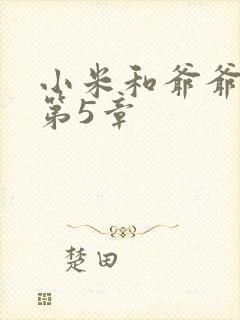 小米和爷爷
第5章
楚田